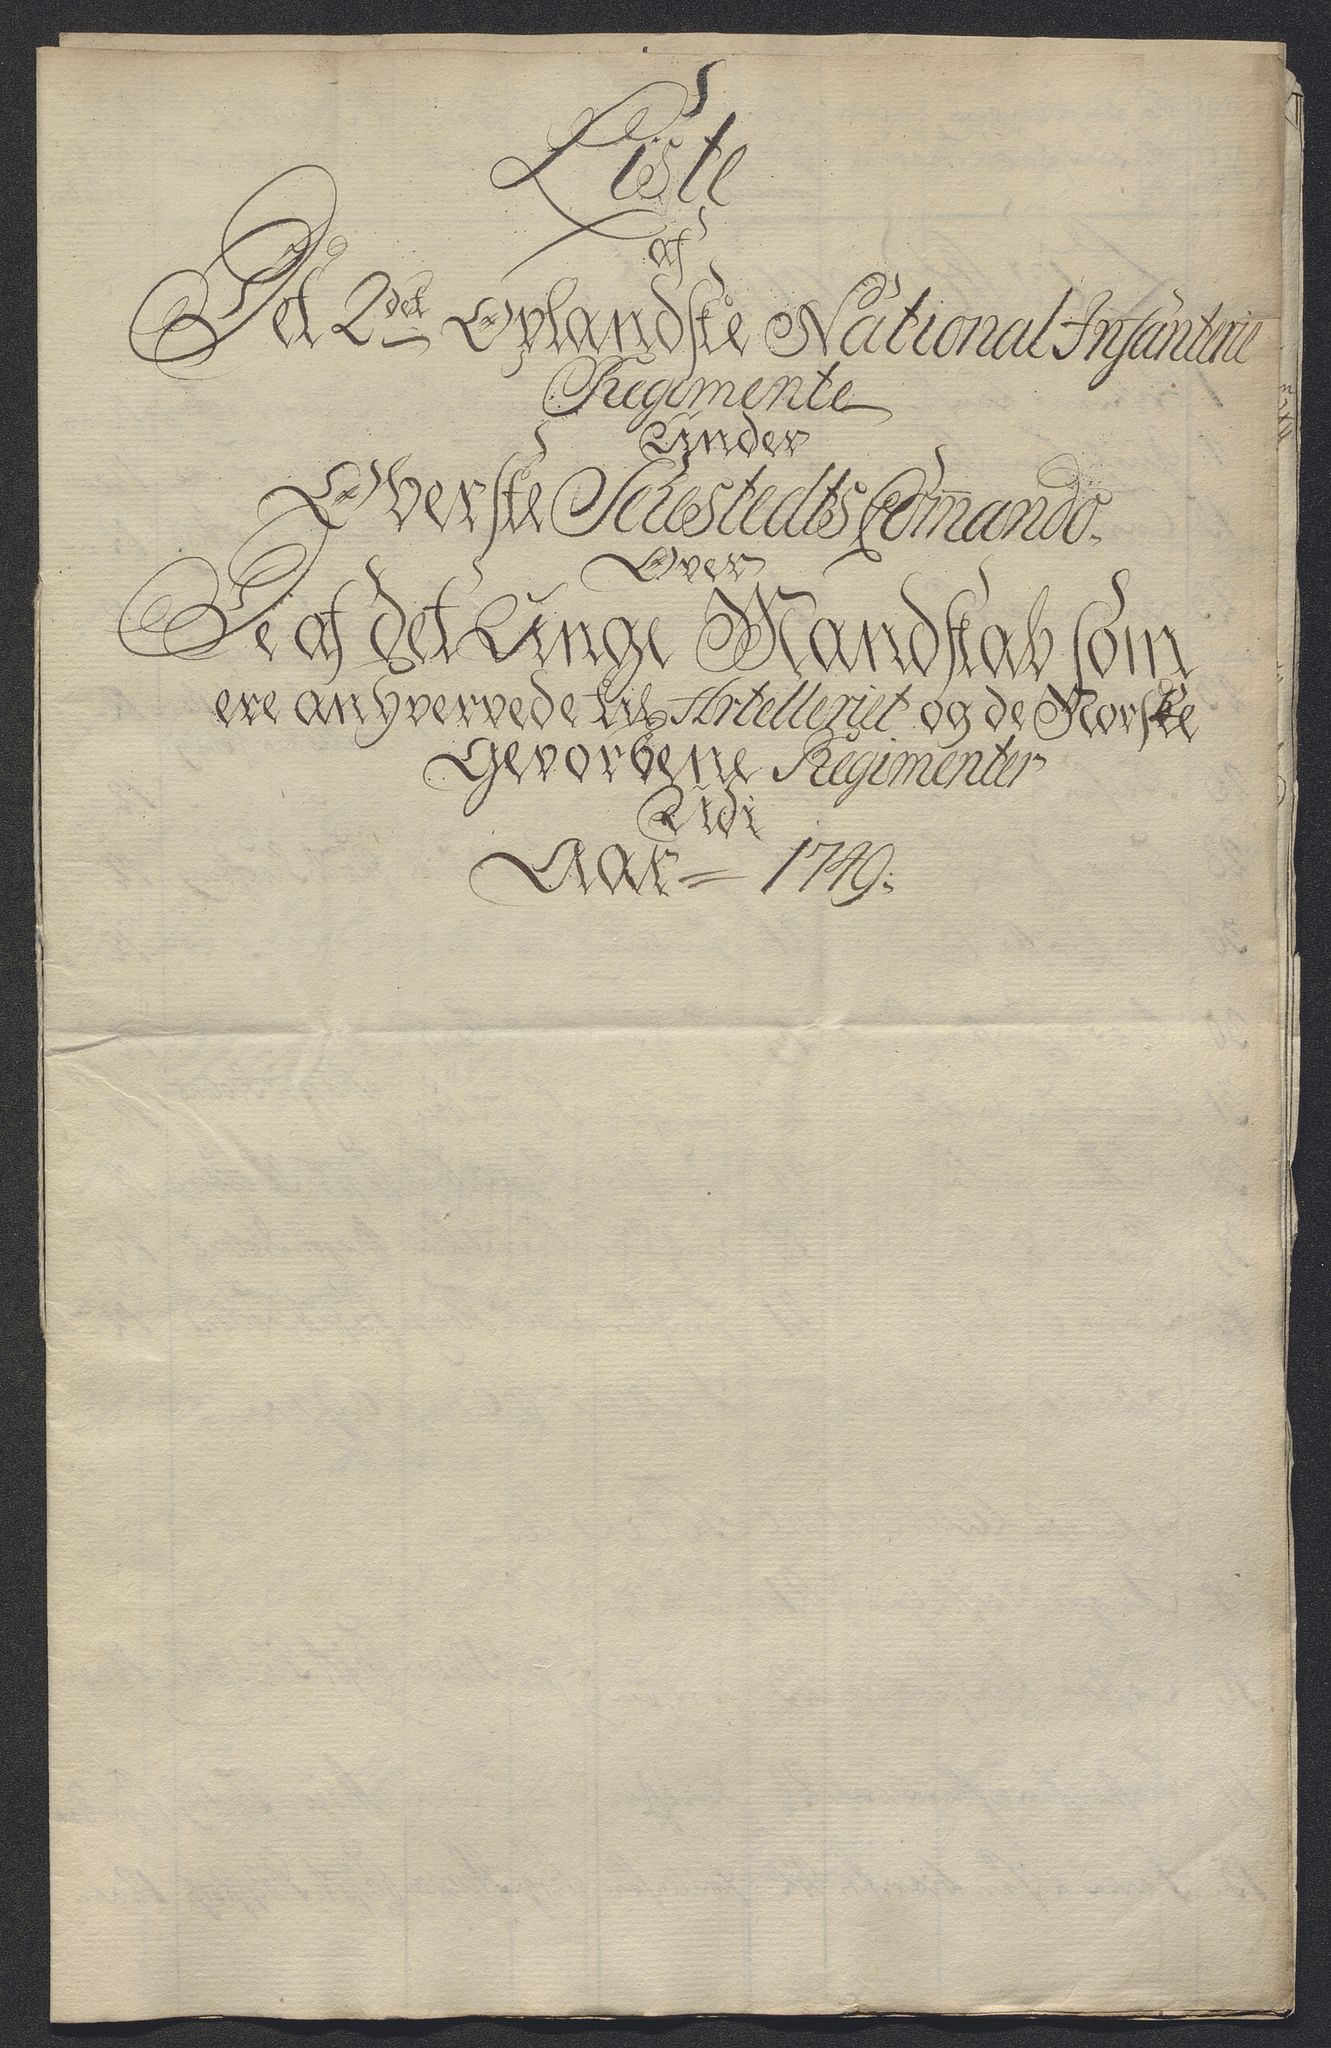 Liste
af
Det 2det Oplandske National Infanterie
Regimente
Under
Øverste Seüstedts Com̄ando.
Over
De af det Unge Mandskab som
ere anhvervede til Artelleriet og de Norske
Gevorbene Regimenter
Udi
Aar = 1749.